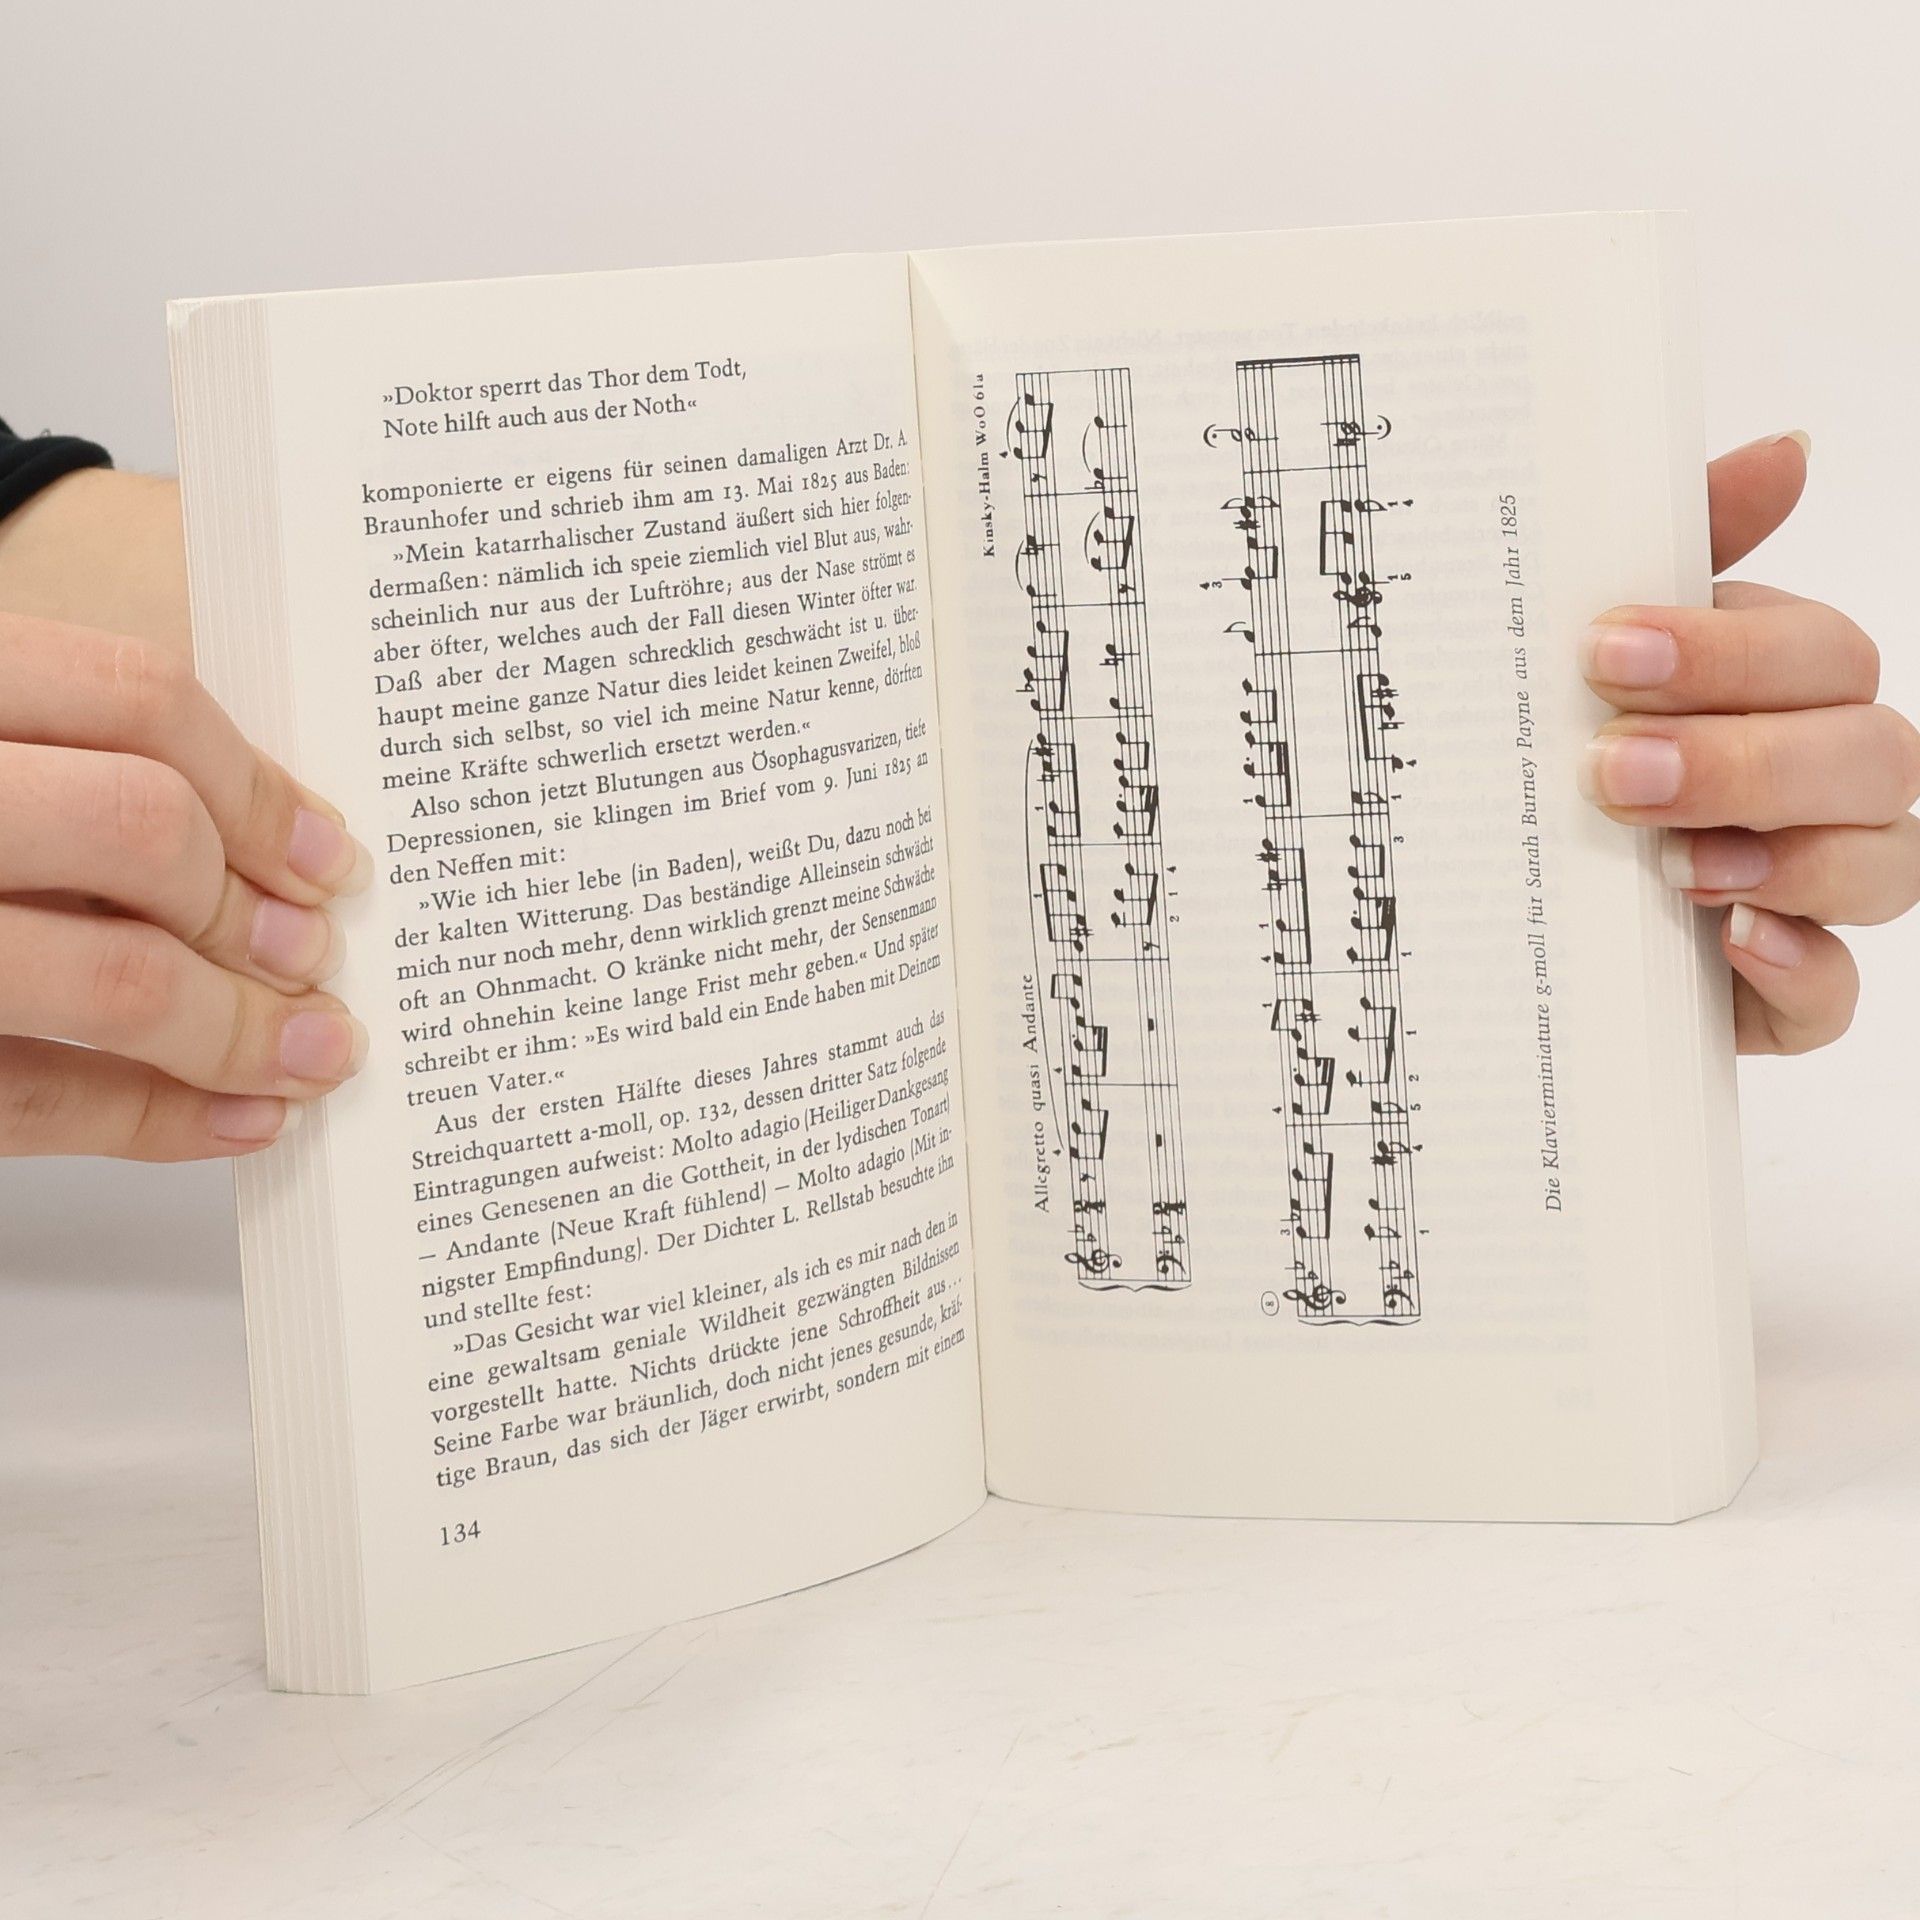 »Doktor sperrt das Thor dem Todt,
Note hilft auch aus der Noth«
komponierte er eigens für seinen damaligen Arzt Dr. A.
Braunhofer und schrieb ihm am 13. Mai 1825 aus Baden:
»Mein katarrhalischer Zustand äußert sich hier folgen-
dermaßen: nämlich ich speie ziemlich viel Blut aus, wahr-
scheinlich nur aus der Luftröhre; aus der Nase strömt es
aber öfter, welches auch der Fall diesen Winter öfter war.
Daß aber der Magen schrecklich geschwächt ist u. über-
haupt meine ganze Natur dies leidet keinen Zweifel, bloß
durch sich selbst, so viel ich meine Natur kenne, dörften
meine Kräfte schwerlich ersetzt werden.“
Also schon jetzt Blutungen aus Ösophagusvarizen, tiefe
Depressionen, sie klingen im Brief vom 9. Juni 1825 an
den Neffen mit:
»Wie ich hier lebe (in Baden), weißt Du, dazu noch bei
der kalten Witterung. Das beständige Alleinsein schwächt
mich nur noch mehr, denn wirklich grenzt meine Schwäche
oft an Ohnmacht. O kränke nicht mehr, der Sensenmann
wird ohnehin keine lange Frist mehr geben.« Und später
schreibt er ihm: »Es wird bald ein Ende haben mit Deinem
treuen Vater.“
Aus der ersten Hälfte dieses Jahres stammt auch das
Streichquartett a-moll, op. 132, dessen dritter Satz folgende
Eintragungen aufweist: Molto adagio (Heiliger Dankgesang
eines Genesenen an die Gottheit, in der lydischen Tonart)
— Andante (Neue Kraft fühlend) — Molto adagio (Mit in-
nigster Empfindung). Der Dichter L. Rellstab besuchte ihn
und stellte fest:
»Das Gesicht war viel kleiner, als ich es mir nach den in
eine gewaltsam geniale Wildheit gezwängten Bildnissen
vorgestellt hatte. Nichts drückte jene Schroffheit aus...
Seine Farbe war bräunlich, doch nicht jenes gesunde, kräf-
tige Braun, das sich der Jäger erwirbt, sondern mit einem
134
Kinsky-Halm WoO 61a
Allegretto quasi Andante
4 4 1 1 4
2 1 4
8
3 4 1 4 1 1 4 3
1 4 5 2 1 1 3 1 4 5 1 4 1
Die Klavierminiature g-moll für Sarah Burney Payne aus dem Jahr 1825